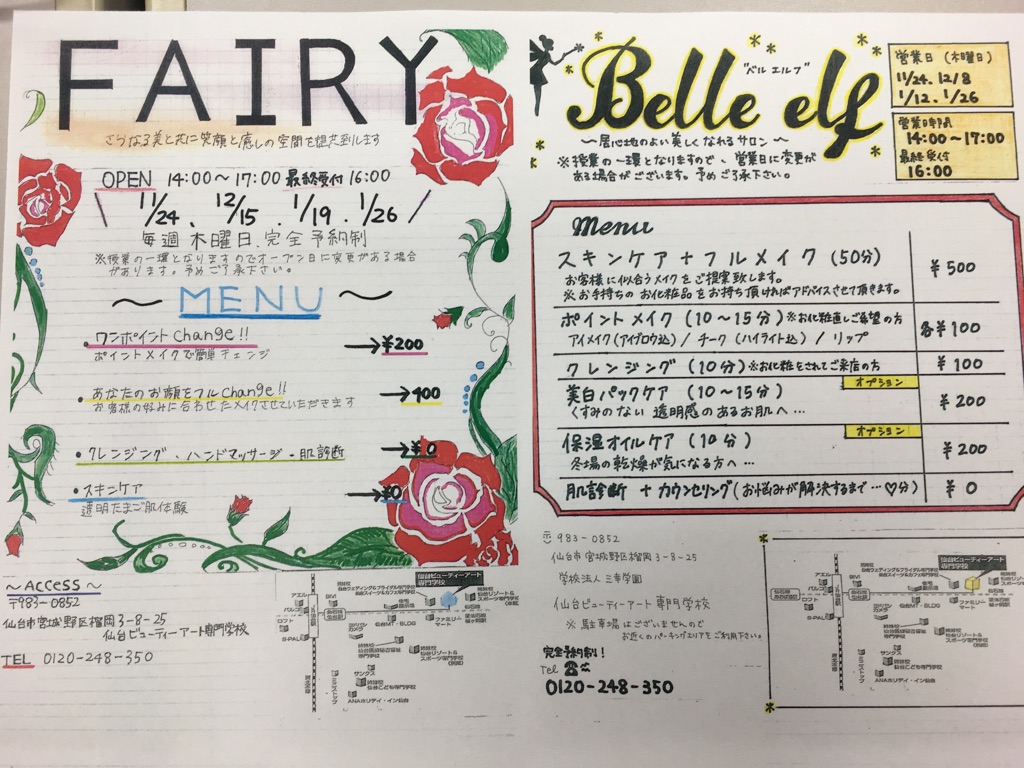 FAIRY
さらなる美と共に笑顔と癒しの空間を提供致します
OPEN 14:00～17:00 最終受付 16:00
11/24、12/15、1/19、1/26
毎週木曜日、完全予約制
※授業の一環となりますのでオープン日に変更がある場合
があります。予めご了承下さい。
～MENU～
・ワンポイントchange!! →¥200
ポイントメイクで簡単チェンジ
・あなたのお顔をフルchange!! →400
お客様の好みに合わせたメイクさせていただきます
・クレンジング、ハンドマッサージ・肌診断 →¥0
・スキンケア →¥0
透明たまご肌体験
～Access～
〒983-0852
仙台市宮城野区榴岡3-8-25
仙台ビューティーアート専門学校
TEL 0120-248-350
仙台ビューティーアート
専門学校
アエル
パルコ
ロフト
S-PAL
BIVI
ヨドバシ
カメラ
仙台MT・BLDG
ファミリー
マート
サンクス
ミニストップ
仙台こども専門学校
ANAホリデイ・イン仙台
Belle elf
"ベル エルフ"
～居心地のよい美しくなれるサロン～
※授業の一環となりますので、営業日に変更が
ある場合がございます。予めご了承下さい。
営業日(木曜日)
11/24. 12/8
1/12. 1/26
営業時間
14:00～17:00
最終受付
16:00
Menu
スキンケア+フルメイク(50分) ¥500
お客様に似合うメイクをご提案致します。
※お手持ちのお化粧品をお持ち頂ければアドバイスさせて頂きます。
ポイントメイク(10～15分)※お化粧直しご希望の方 各¥100
アイメイク(アイブロウ込)/チーク(ハイライト込)/リップ
クレンジング(10分)※お化粧をされてご来店の方 ¥100
美白パックケア(10～15分) オプション ¥200
くすみのない透明感のあるお肌へ…
保湿オイルケア(10分) オプション ¥200
冬場の乾燥が気になる方へ…
肌診断+カウンセリング(お悩みが解決するまで…♡分) ¥0
〒983-0852
仙台市宮城野区榴岡3-8-25
学校法人三幸学園
仙台ビューティーアート専門学校
※駐車場はございませんので
お近くのパーキングエリアをご利用下さい。
完全予約制!
Tel
0120-248-350
仙台ビューティーアート
専門学校
アエル
パルコ
ロフト
S-PAL
BIVI
ヨドバシ
カメラ
仙台MT・BLDG
ファミリー
マート
サンクス
ミニストップ
仙台こども専門学校
ANAホリデイ・イン仙台